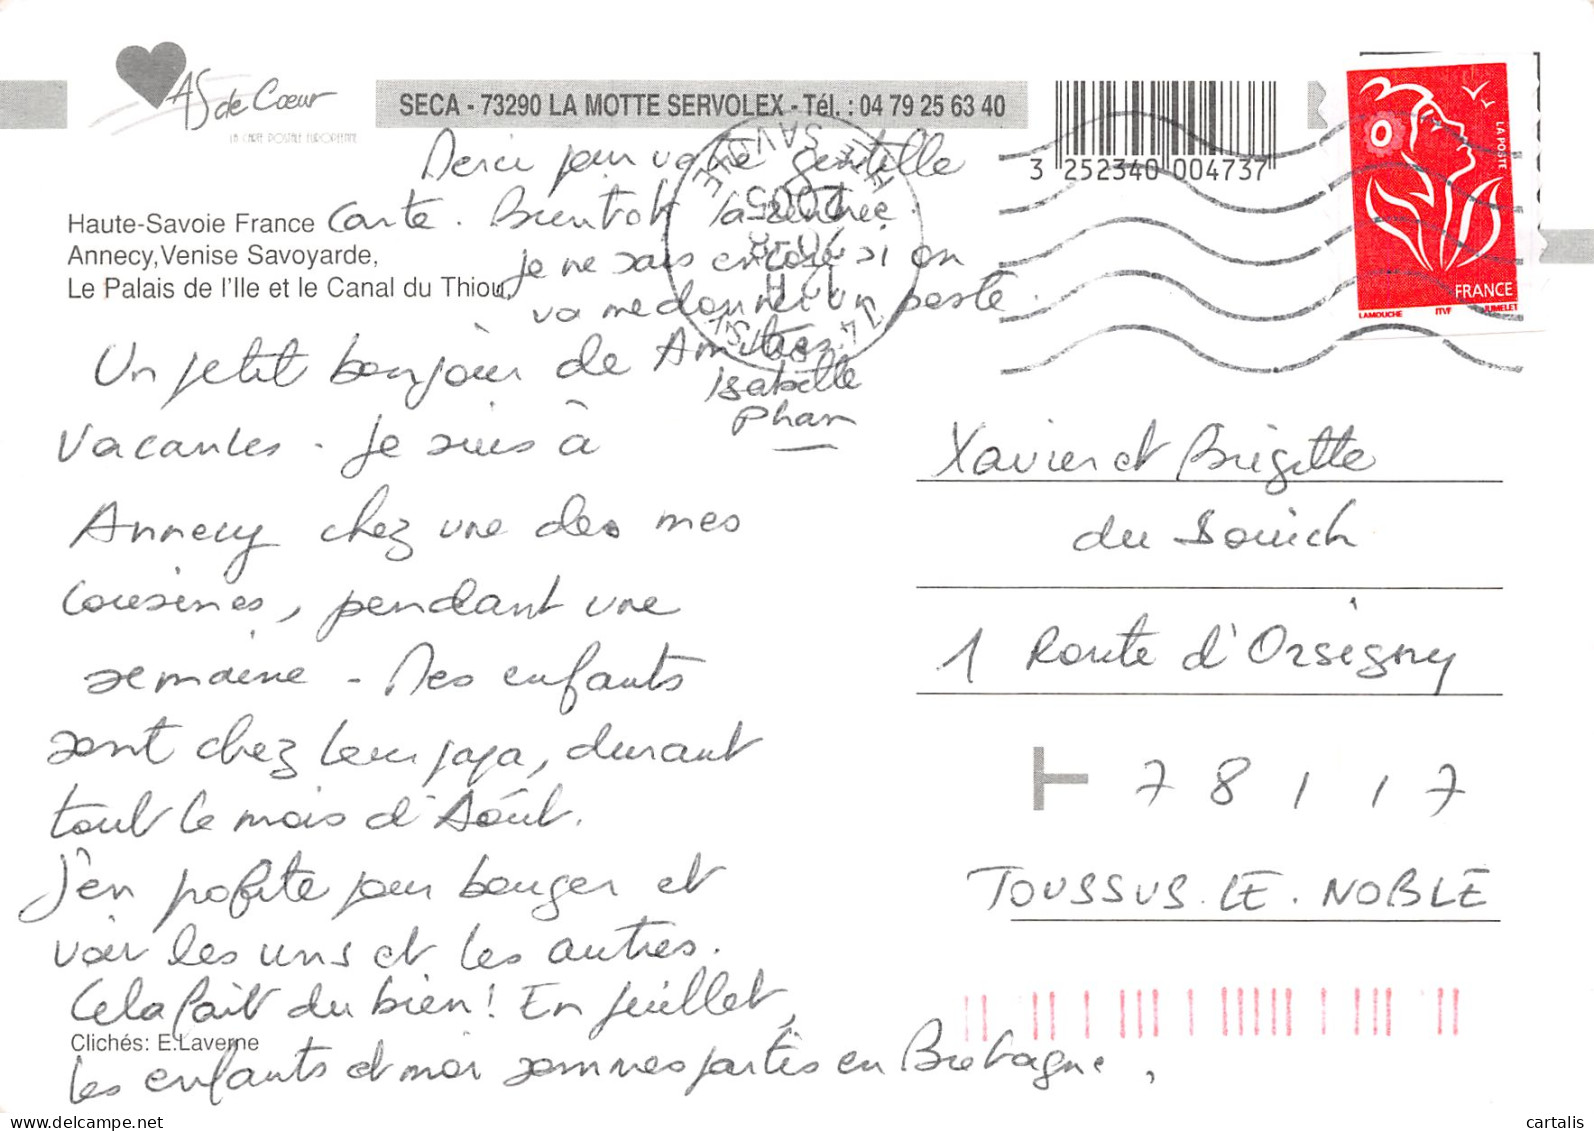 AS de Cœur
LA CARTE POSTALE EUROPEENNE
SECA - 73290 LA MOTTE SERVOLEX - Tél. : 04 79 25 63 40
3 252340 004737
LA POSTE
FRANCE
LAMOUCHE ITVF JUMELET
HTE SAVOIE
2005
74
Haute-Savoie France
Annecy, Venise Savoyarde,
Le Palais de l'Ile et le Canal du Thiou.
Un petit bonjour de
vacances. Je suis à
Annecy chez une des mes
cousines, pendant une
semaine - Mes enfants
sont chez leur papa, durant
tout le mois d'Août.
J'en profite pour bouger et
voir les uns et les autres.
Cela fait du bien ! En juillet,
les enfants et moi sommes partis en Bretagne.
Merci pour votre gentille
carte. Bientôt la rentrée.
je ne sais encore si on
va me donner un poste.
Amitiés.
Isabelle
Phan
Clichés: E.Laverne
Xavier et Brigitte
du Bouich
1 Route d'Orsigny
78117
TOUSSUS. LE. NOBLE
delcampe.net
cartcollect